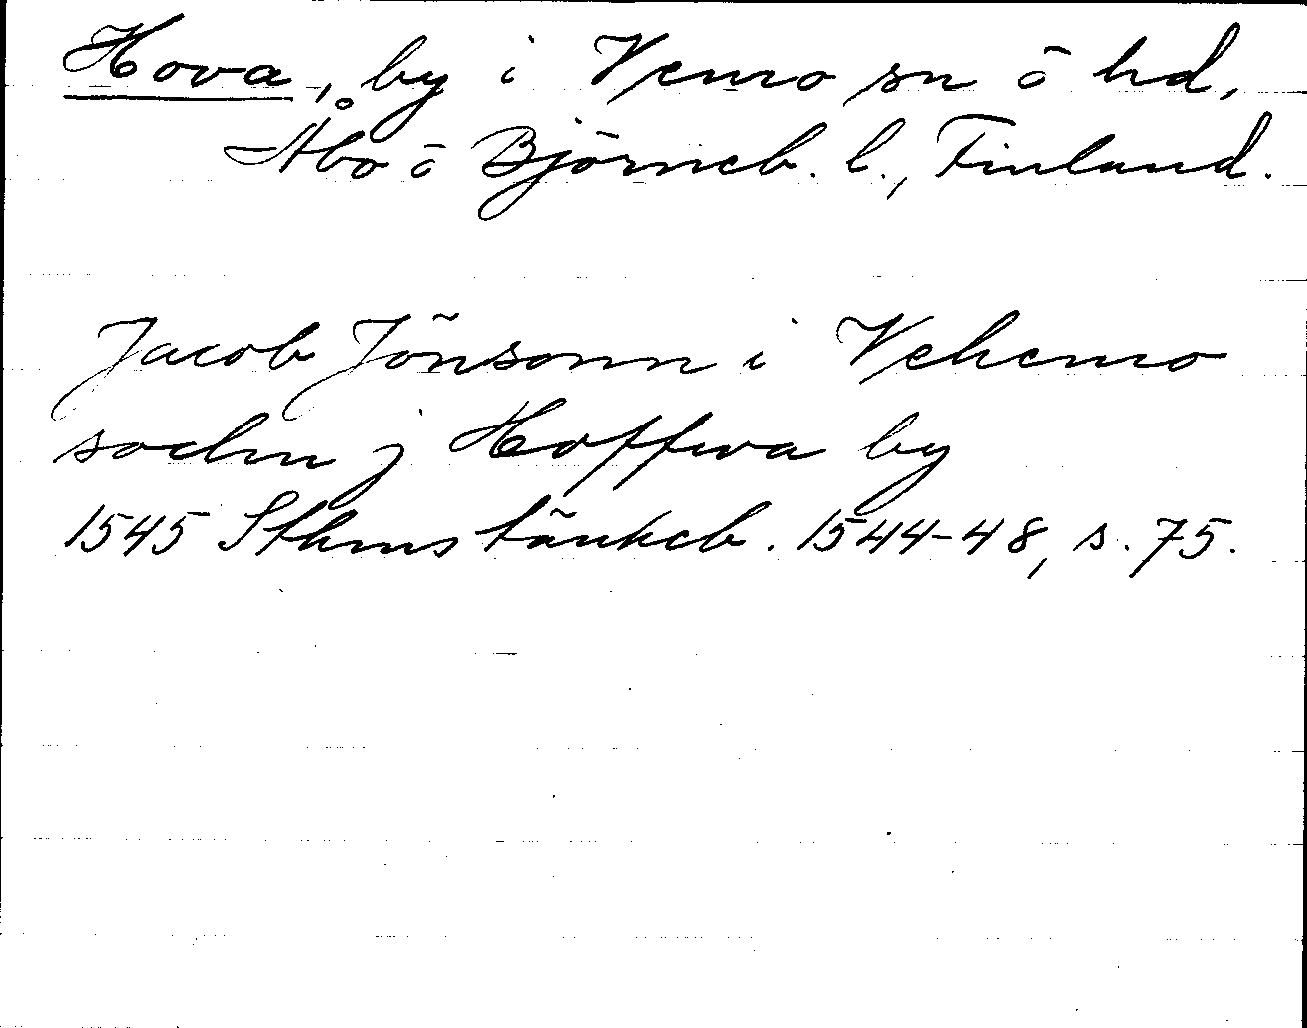 Hova, by i Vemo sn ō hd,
Åbo ō Björneb. l., Finland.
Jacob Jönsonn i Vehemo
sochn j Hoffwa by
1545 Sthms tänkeb. 1544-48, s. 75.